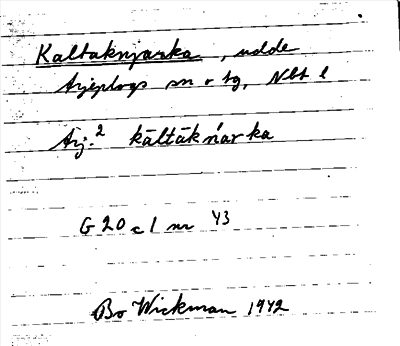 Kaltaknjarka, udde
Arjeplogs sn o tg, Nbt l
Arj.² kāltāk ńarka
G 20 c 1 nr 43
Bo Wickman 1942